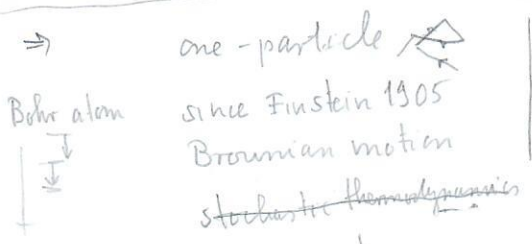 ⇒ one-particle
Bohr atom since Einstein 1905
Brownian motion
stochastic thermodynamics